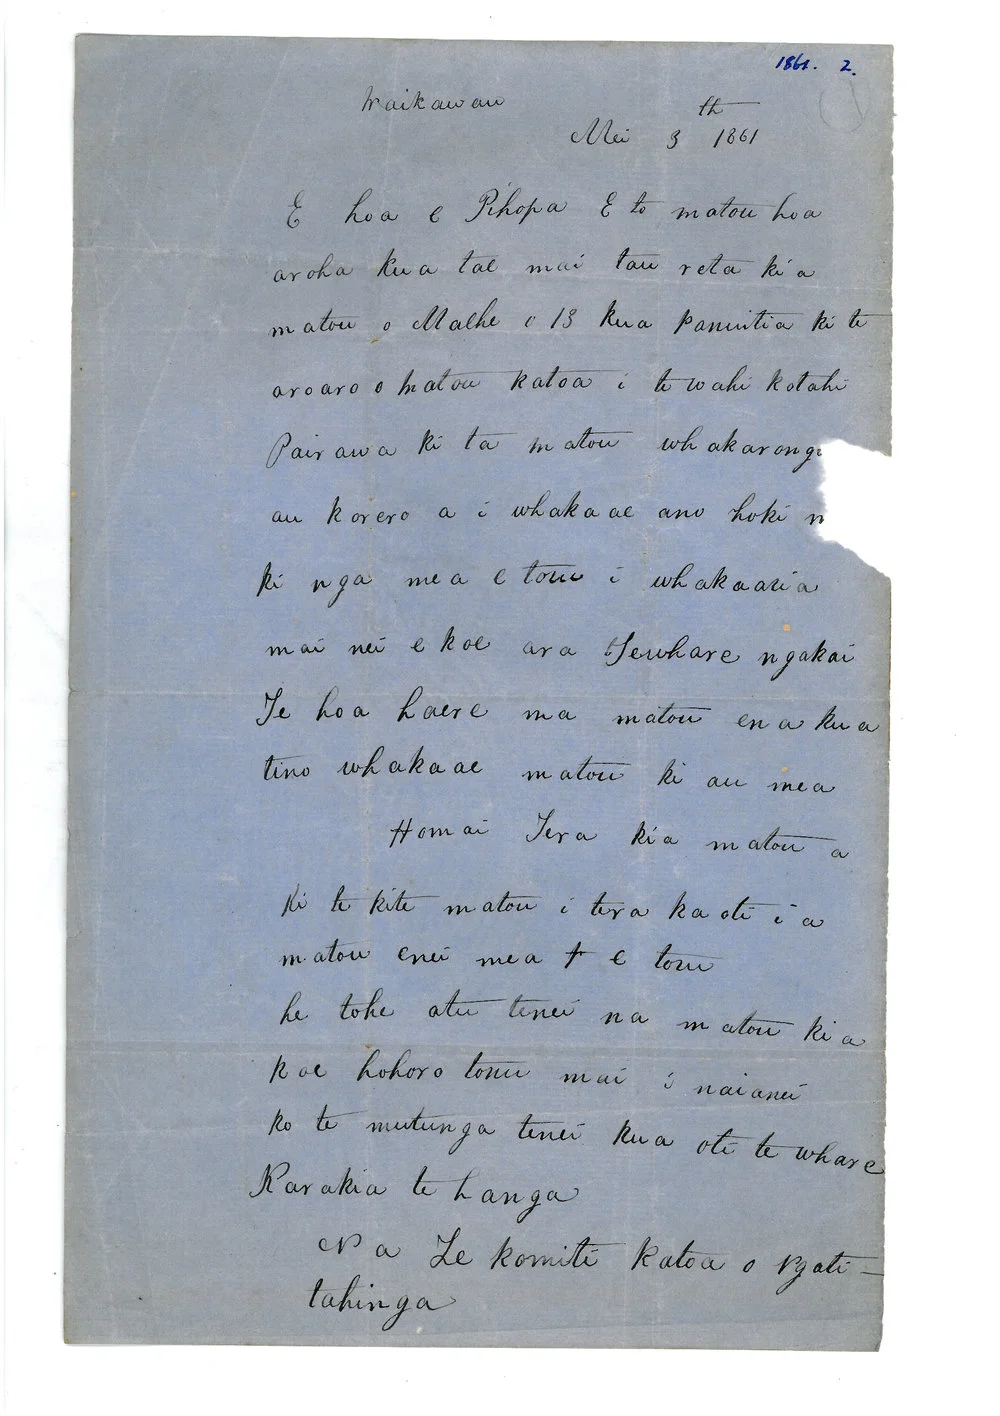 1861. 2.
Waikawau
th
Mei 3 1861
E hoa e Pihopa E to matou hoa
aroha kua tae mai tau reta ki a
matou o Maehe o 13 kua panuitia ki te
aroaro o matou katoa i te wahi kotahi
Pairawa ki ta matou whakarongo
au korero a i whakaae ano hoki
ki nga mea e toru i whakaaria
mai nei e koe ara Tewhare ngakai
Te hoa haere ma matou ena kua
tino whakaae matou ki au mea
Homai Tera kia matou a
Ki te kite matou i tera ka oti i a
matou enei mea e toru
he tohe atu tenei na matou ki a
koe hohoro tonu mai i naianei
ko te mutunga tenei kua oti te whare
Karakia te hanga
Na Te komiti katoa o Ngati-
tahinga